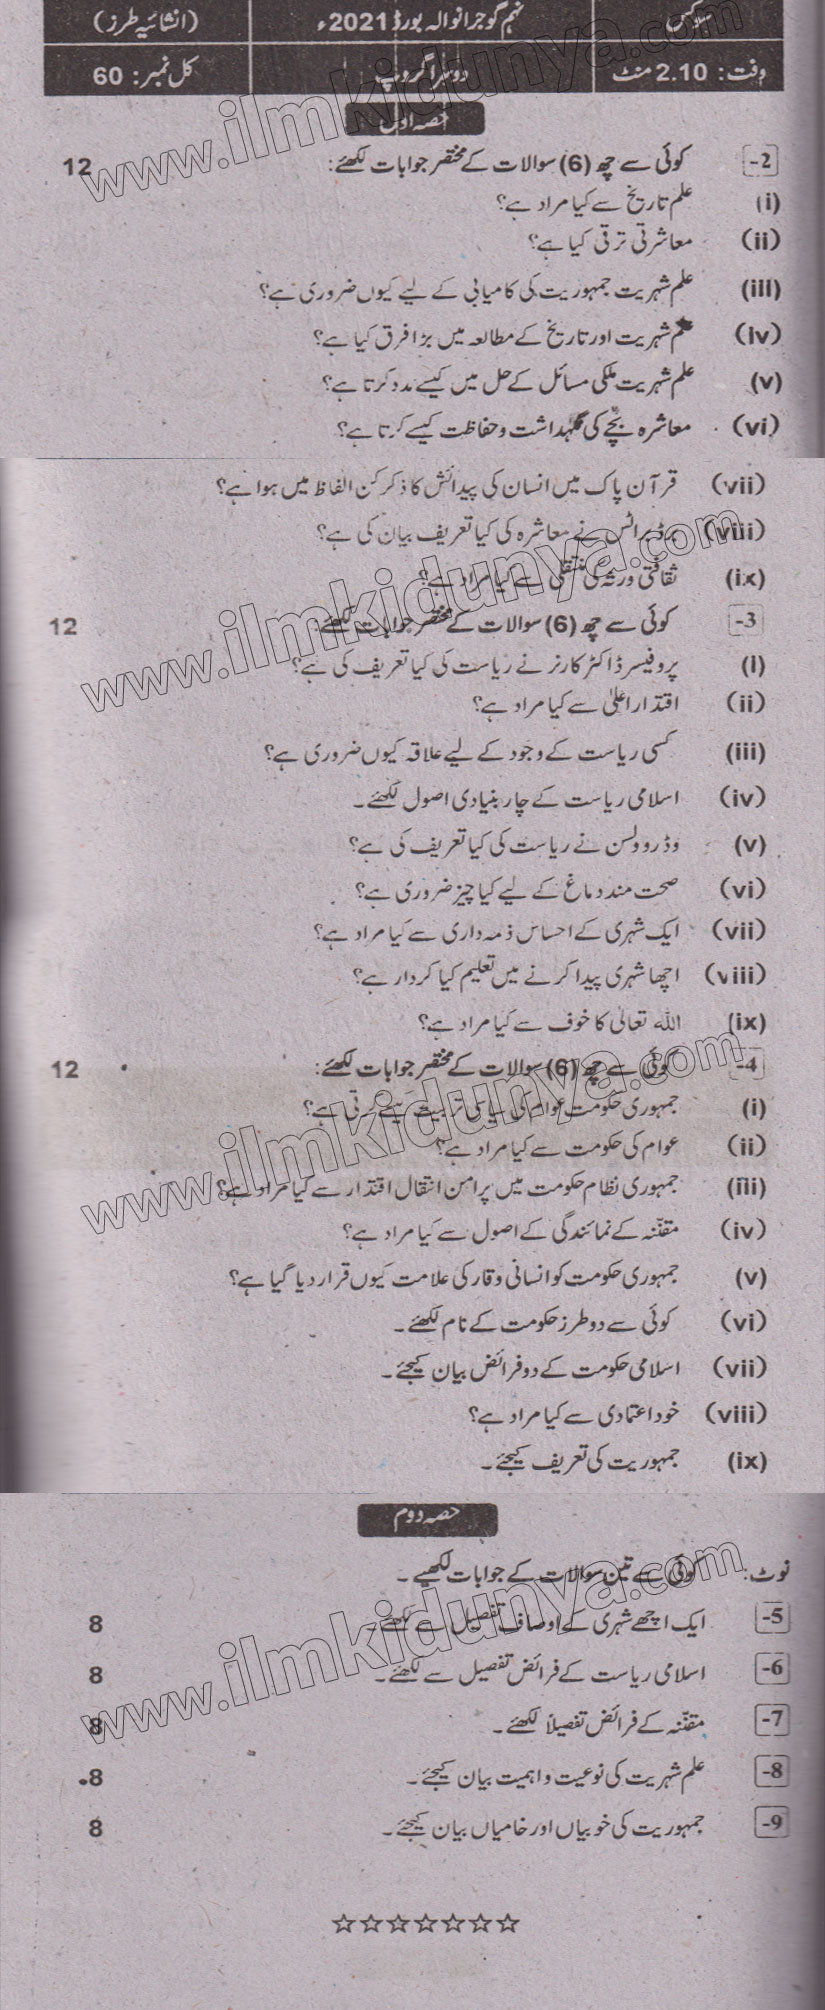 سوکس نہم گوجرانوالہ بورڈ 2021ء (انشائیہ طرز)
وقت: 2.10 منٹ دوسرا گروپ کل نمبر: 60
حصہ اول
2- کوئی سے چھ (6) سوالات کے مختصر جوابات لکھئے: 12
(i) علم تاریخ سے کیا مراد ہے؟
(ii) معاشرتی ترقی کیا ہے؟
(iii) علم شہریت جمہوریت کی کامیابی کے لیے کیوں ضروری ہے؟
(iv) علم شہریت اور تاریخ کے مطالعہ میں بڑا فرق کیا ہے؟
(v) علم شہریت ملکی مسائل کے حل میں کیسے مدد کرتا ہے؟
(vi) معاشرہ بچے کی نگہداشت و حفاظت کیسے کرتا ہے؟
(vii) قرآن پاک میں انسان کی پیدائش کا ذکر کن الفاظ میں ہوا ہے؟
(viii) نے معاشرہ کی کیا تعریف بیان کی ہے؟
(ix) ثقافتی ورثہ کی منتقلی سے کیا مراد ہے؟
3- کوئی سے چھ (6) سوالات کے مختصر جوابات لکھئے: 12
(i) پروفیسر ڈاکٹر گارنر نے ریاست کی کیا تعریف کی ہے؟
(ii) اقتدار اعلیٰ سے کیا مراد ہے؟
(iii) کسی ریاست کے وجود کے لیے علاقہ کیوں ضروری ہے؟
(iv) اسلامی ریاست کے چار بنیادی اصول لکھئے۔
(v) وڈرو ولسن نے ریاست کی کیا تعریف کی ہے؟
(vi) صحت مند دماغ کے لیے کیا چیز ضروری ہے؟
(vii) ایک شہری کے احساس ذمہ داری سے کیا مراد ہے؟
(viii) اچھا شہری پیدا کرنے میں تعلیم کیا کردار ہے؟
(ix) اللہ تعالیٰ کا خوف سے کیا مراد ہے؟
4- کوئی سے چھ (6) سوالات کے مختصر جوابات لکھئے: 12
(i) جمہوری حکومت عوام کی سیاسی تربیت کیسے کرتی ہے؟
(ii) عوام کی حکومت سے کیا مراد ہے؟
(iii) جمہوری نظام حکومت میں پرامن انتقال اقتدار سے کیا مراد ہے؟
(iv) مقننہ کے نمائندگی کے اصول سے کیا مراد ہے؟
(v) جمہوری حکومت کو انسانی وقار کی علامت کیوں قرار دیا گیا ہے؟
(vi) کوئی سے دو طرز حکومت کے نام لکھئے۔
(vii) اسلامی حکومت کے دو فرائض بیان کیجئے۔
(viii) خود اعتمادی سے کیا مراد ہے؟
(ix) جمہوریت کی تعریف کیجئے۔
حصہ دوم
نوٹ: کوئی سے تین سوالات کے جوابات لکھیے۔
5- ایک اچھے شہری کے اوصاف تفصیل سے لکھئے۔ 8
6- اسلامی ریاست کے فرائض تفصیل سے لکھئے۔ 8
7- مقننہ کے فرائض تفصیلاً لکھئے۔ 8
8- علم شہریت کی نوعیت و اہمیت بیان کیجئے۔ 8
9- جمہوریت کی خوبیاں اور خامیاں بیان کیجئے۔ 8
www.ilmkidunya.com
www.ilmkidunya.com
www.ilmkidunya.com
www.ilmkidunya.com